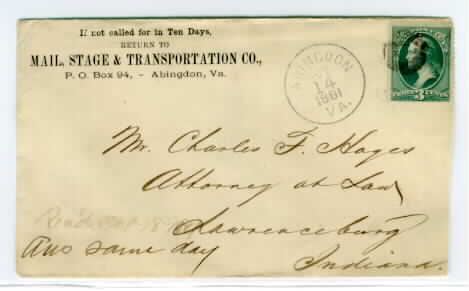 If not called for in Ten Days,
RETURN TO
MAIL, STAGE & TRANSPORTATION CO.,
P. O. Box 94, - Abingdon, Va.
ABINGDON
14
1881
VA.
3 CENTS
Mr. Charles F. Hayes
Attorney at Law
Lawrenceburg
Indiana.
Rec'd
Ans same day